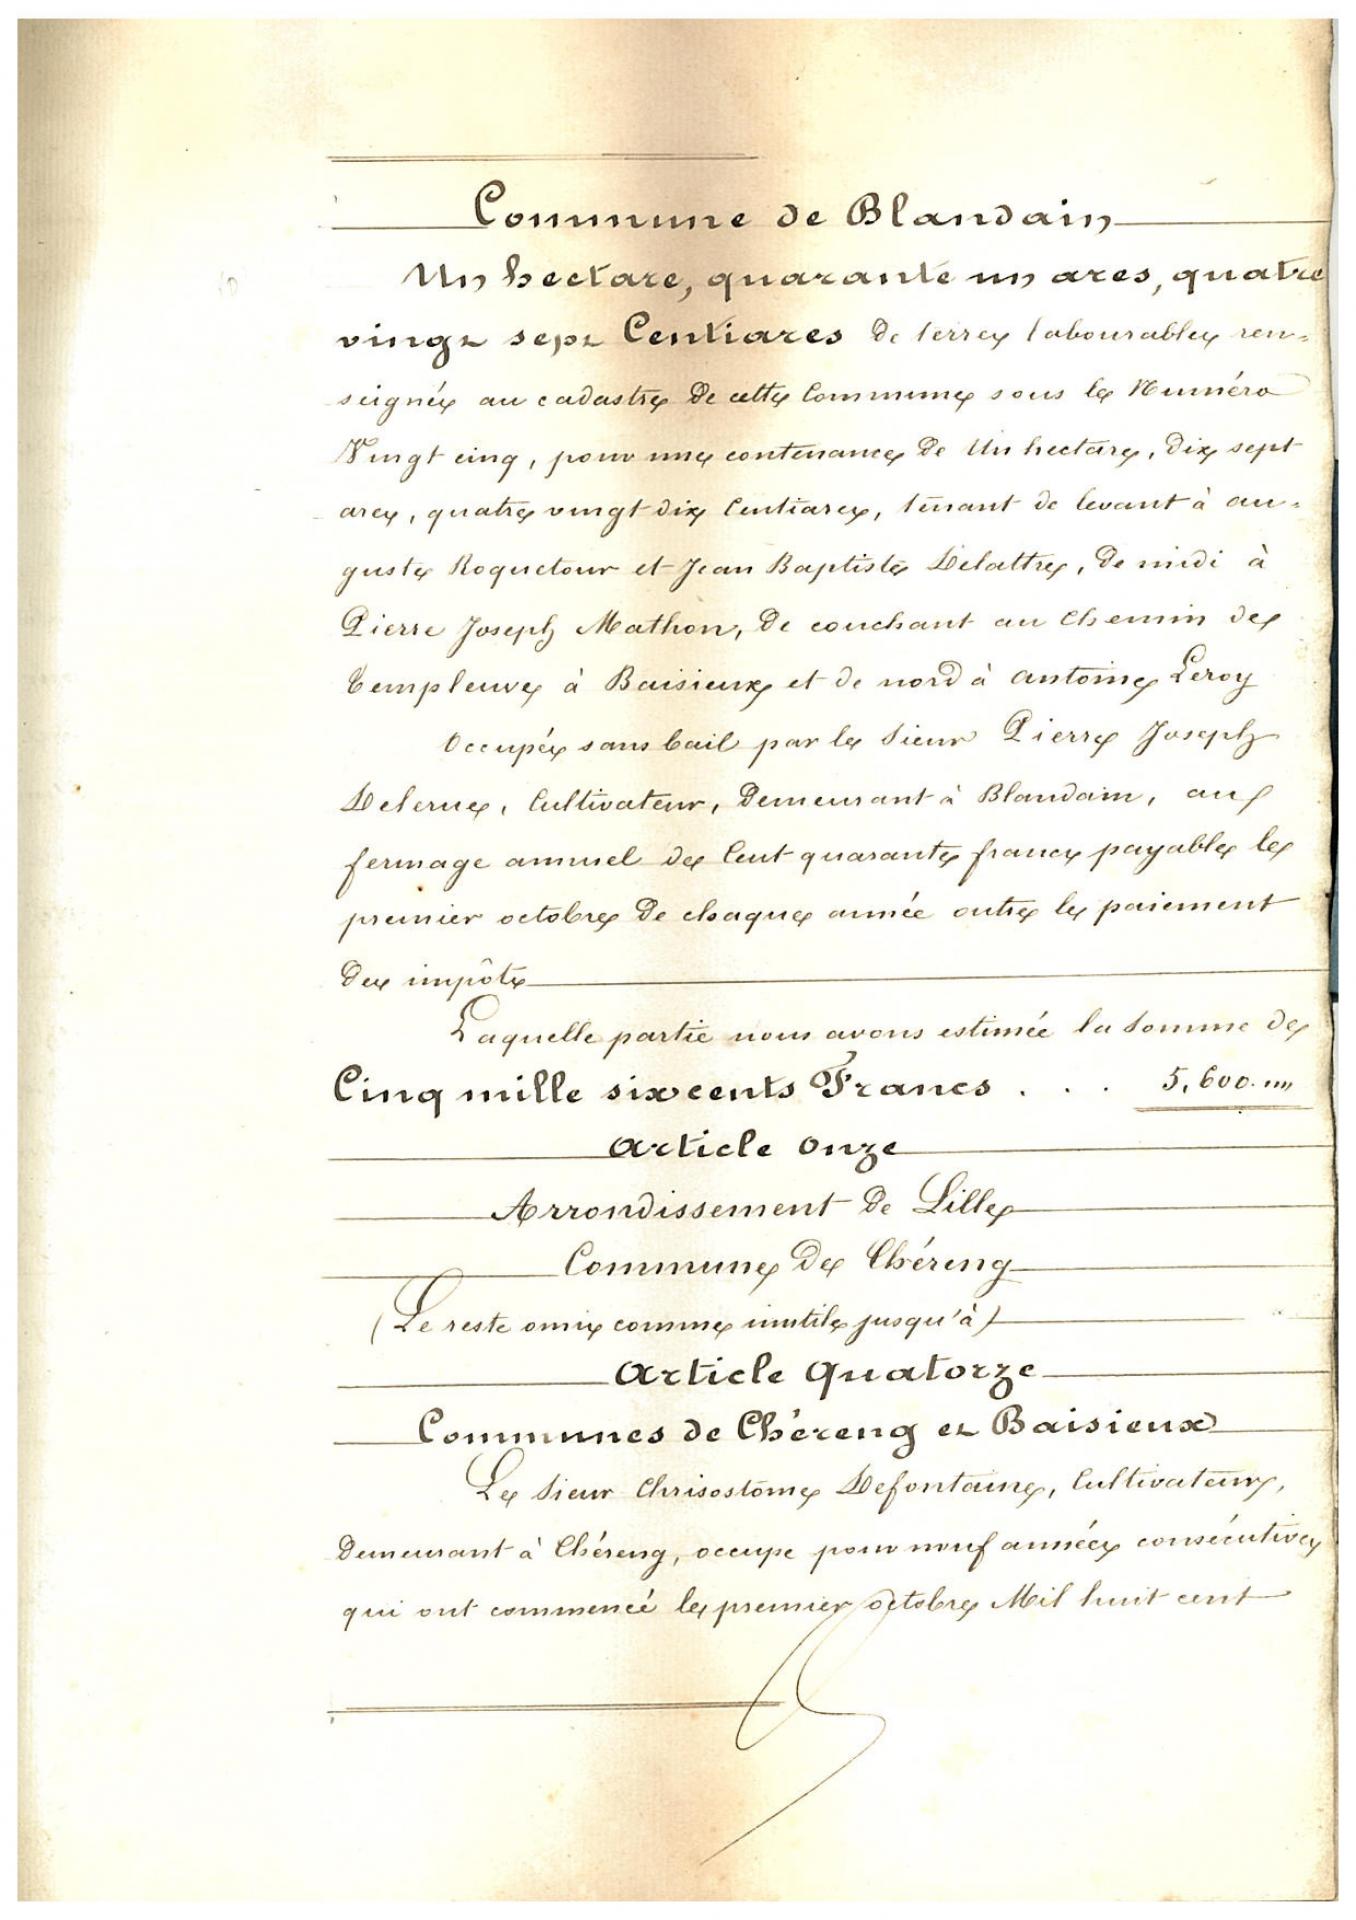 Commune de Blandain
Un hectare, quarante un ares, quatre
vingt sept Centiares de terre labourable ren-
seignée au cadastre de cette Commune sous le Numéro
Vingt cinq, pour une contenance de Un hectare, dix sept
ares, quatre vingt dix Centiares, tenant de levant à au-
guste Roquetour et Jean Baptiste Delattre, de midi à
Pierre Joseph Mathon, de couchant au Chemin de
Templeuve à Baisieux et de nord à antoine Leroy
Occupée sans bail par le Sieur Pierre Joseph
Delerue, Cultivateur, Demeurant à Blandain, au
fermage annuel de Cent quarante francs payable le
premier octobre de chaque année outre le paiement
des impôts
Laquelle partie nous avons estimée la Somme de
Cinq mille six cents Francs . . . 5,600.""
Article Onze
Arrondissement de Lille
Commune de Chéreng
(Le reste omis comme inutile jusqu'à)
Article Quatorze
Communes de Chéreng et Baisieux
Le Sieur Chrisostome Defontaine, Cultivateur,
Demeurant à Chéreng, occupe pour neuf années consécutives
qui ont commencé le premier octobre Mil huit cent